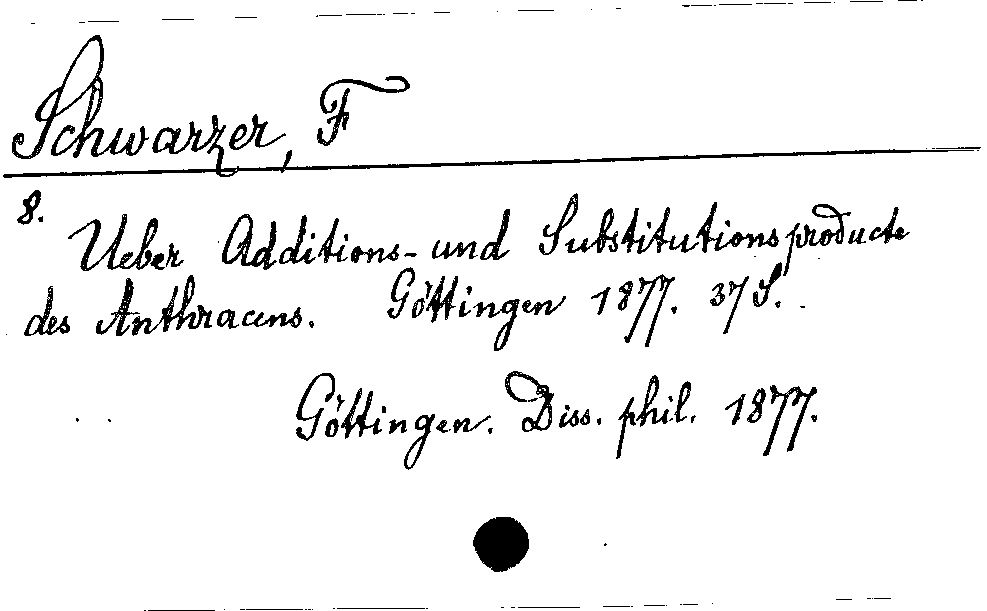 Schwarzer, F
8.
Ueber Additions- und Substitutionsproducte
des Anthracens. Göttingen 1877. 37 S.
Göttingen. Diss. phil. 1877.